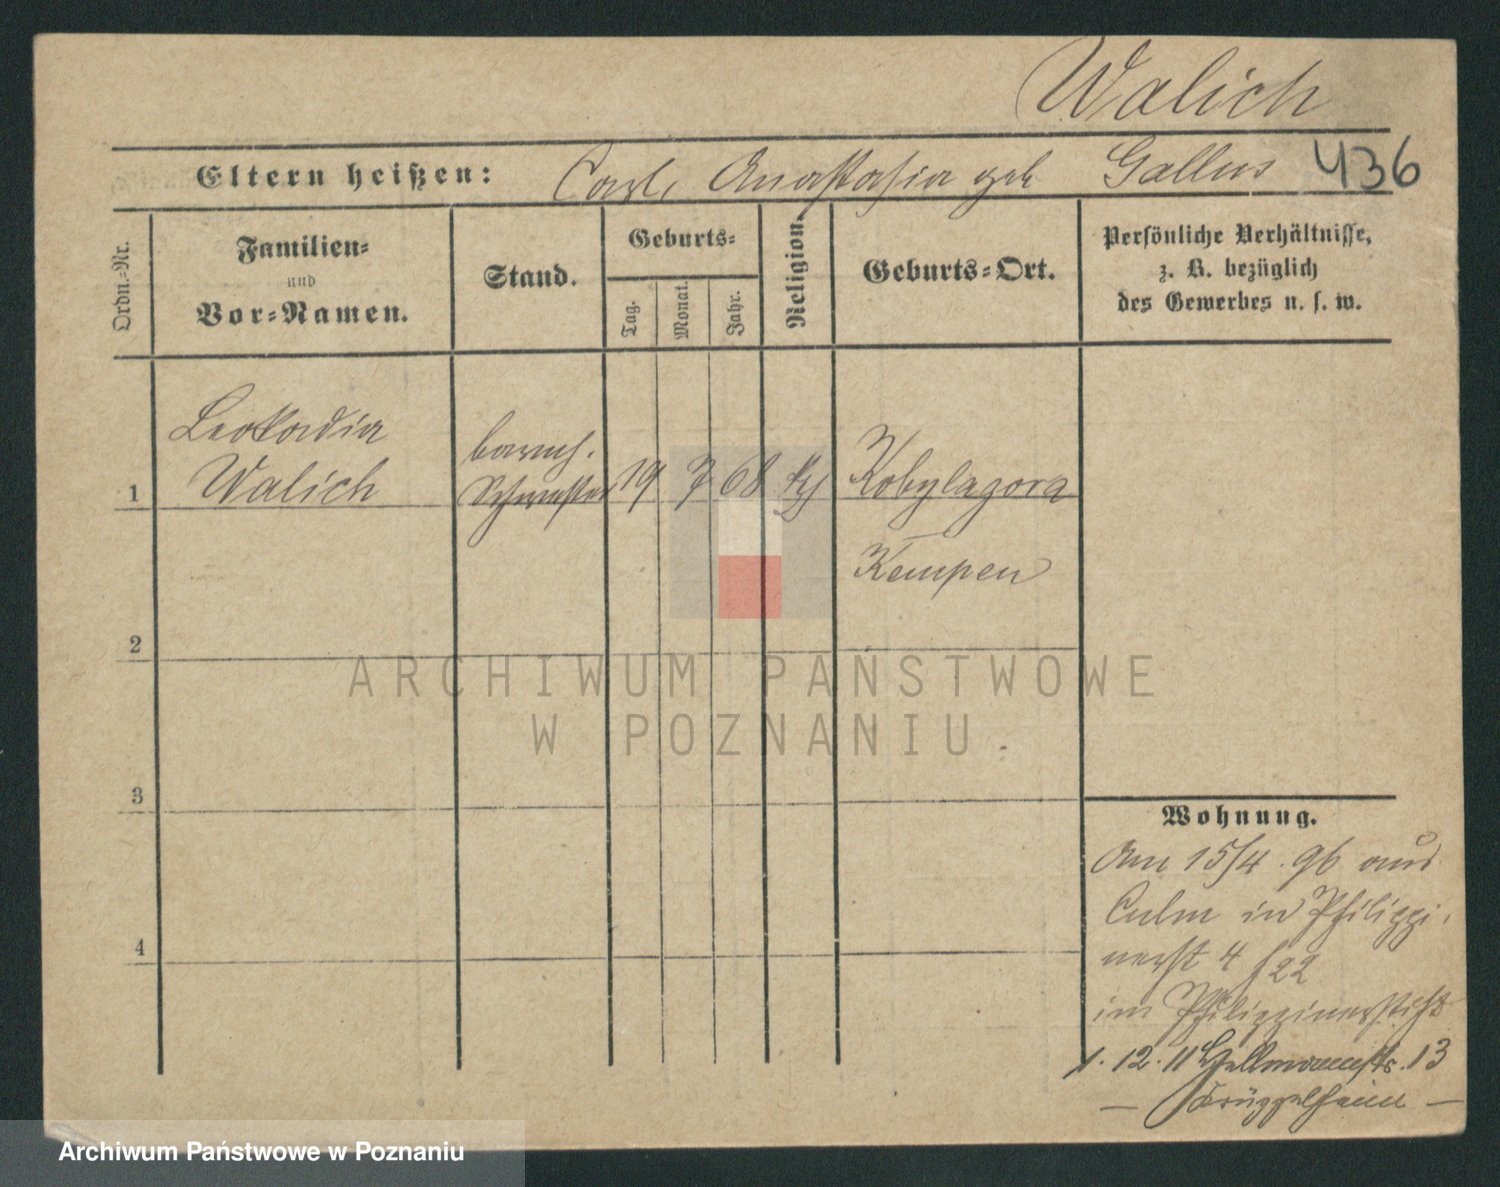 Walich
Eltern heißen: Carl, Anastasia geb Gallus 436
Ordn.-Nr.
Familien-
und
Vor-Namen.
Stand.
Geburts-
Tag.
Monat.
Jahr.
Religion.
Geburts-Ort.
Persönliche Verhältnisse,
z. B. bezüglich
des Gewerbes u. s. w.
Leokadia
1 Walich
barmh.
Schwester 19 7 68 Kobylagora
Kempen
2
3
4
Wohnung.
Am 15/4. 96 aus
Culm in Philippi-
nerst 4 22
im Philippinerstift
1. 12. 11 13
— Krüppelheim —
ARCHIWUM PAŃSTWOWE
W POZNANIU
Archiwum Państwowe w Poznaniu